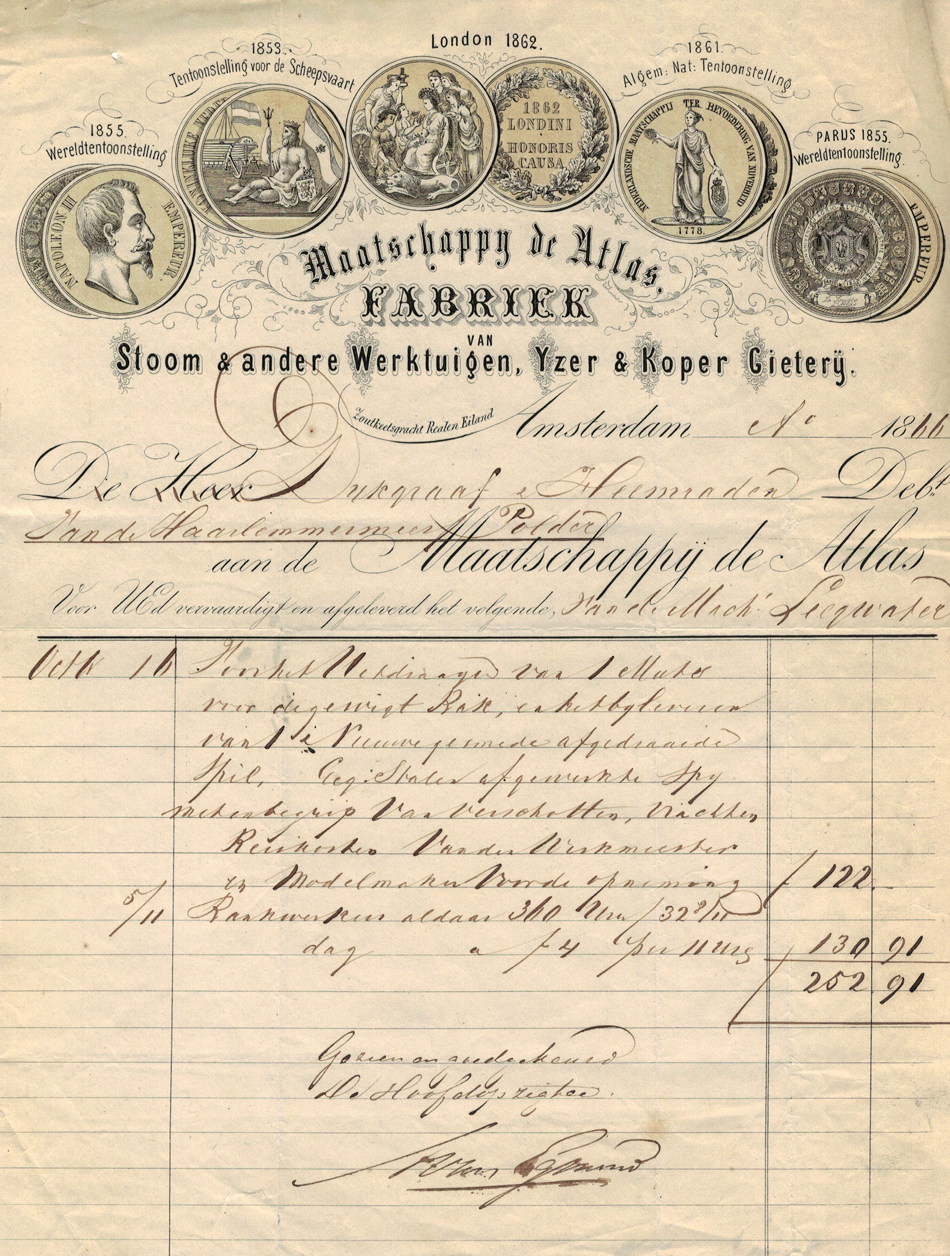 London 1862.
1853.
Tentoonstelling voor de Scheepsvaart
1861.
Algem: Nat: Tentoonstelling
1855.
Wereldtentoonstelling
PARUS 1855.
Wereldtentoonstelling.
NAPOLEON III EMPEREUR
1862
LONDINI
HONORIS
CAUSA
NEDERLANDSCHE MAATSCHAPPIJ TER BEVORDERING VAN NIJVERHEID
1778.
Maatschappy de Atlas,
FABRIEK
VAN
Stoom & andere Werktuigen, Yzer & Koper Gieterÿ.
Zoutkeetsgracht Realen Eiland
Amsterdam Ao 1866
De Heer Dykgraaf & Heemraden Debt.
Van de Haarlemmermeer Polder
aan de Maatschappÿ de Atlas
Voor UEd vervaardigt en afgeleverd het volgende, Van de Mach: Leeghwater
16 Voor het Uitdraayen van 1
voor de gewigt Bak, en het byleveren
van 1 Nieuwe gesmede afgedraaide
Spil, Geg: Stalen afgewerkte Spy
met inbegrip Van Verschotten, Vrachten
Reiskosten Van den Werkmeester
en Modelmaker Voor de opneming f 122.-
5/11 Bankwerkers aldaar 360 Uren / 32 8/11
dag a f 4 per 11 Ure 130 91
f 252 91
Gezien en goedgekeurd
De Hoofdopzigter
van Egmond